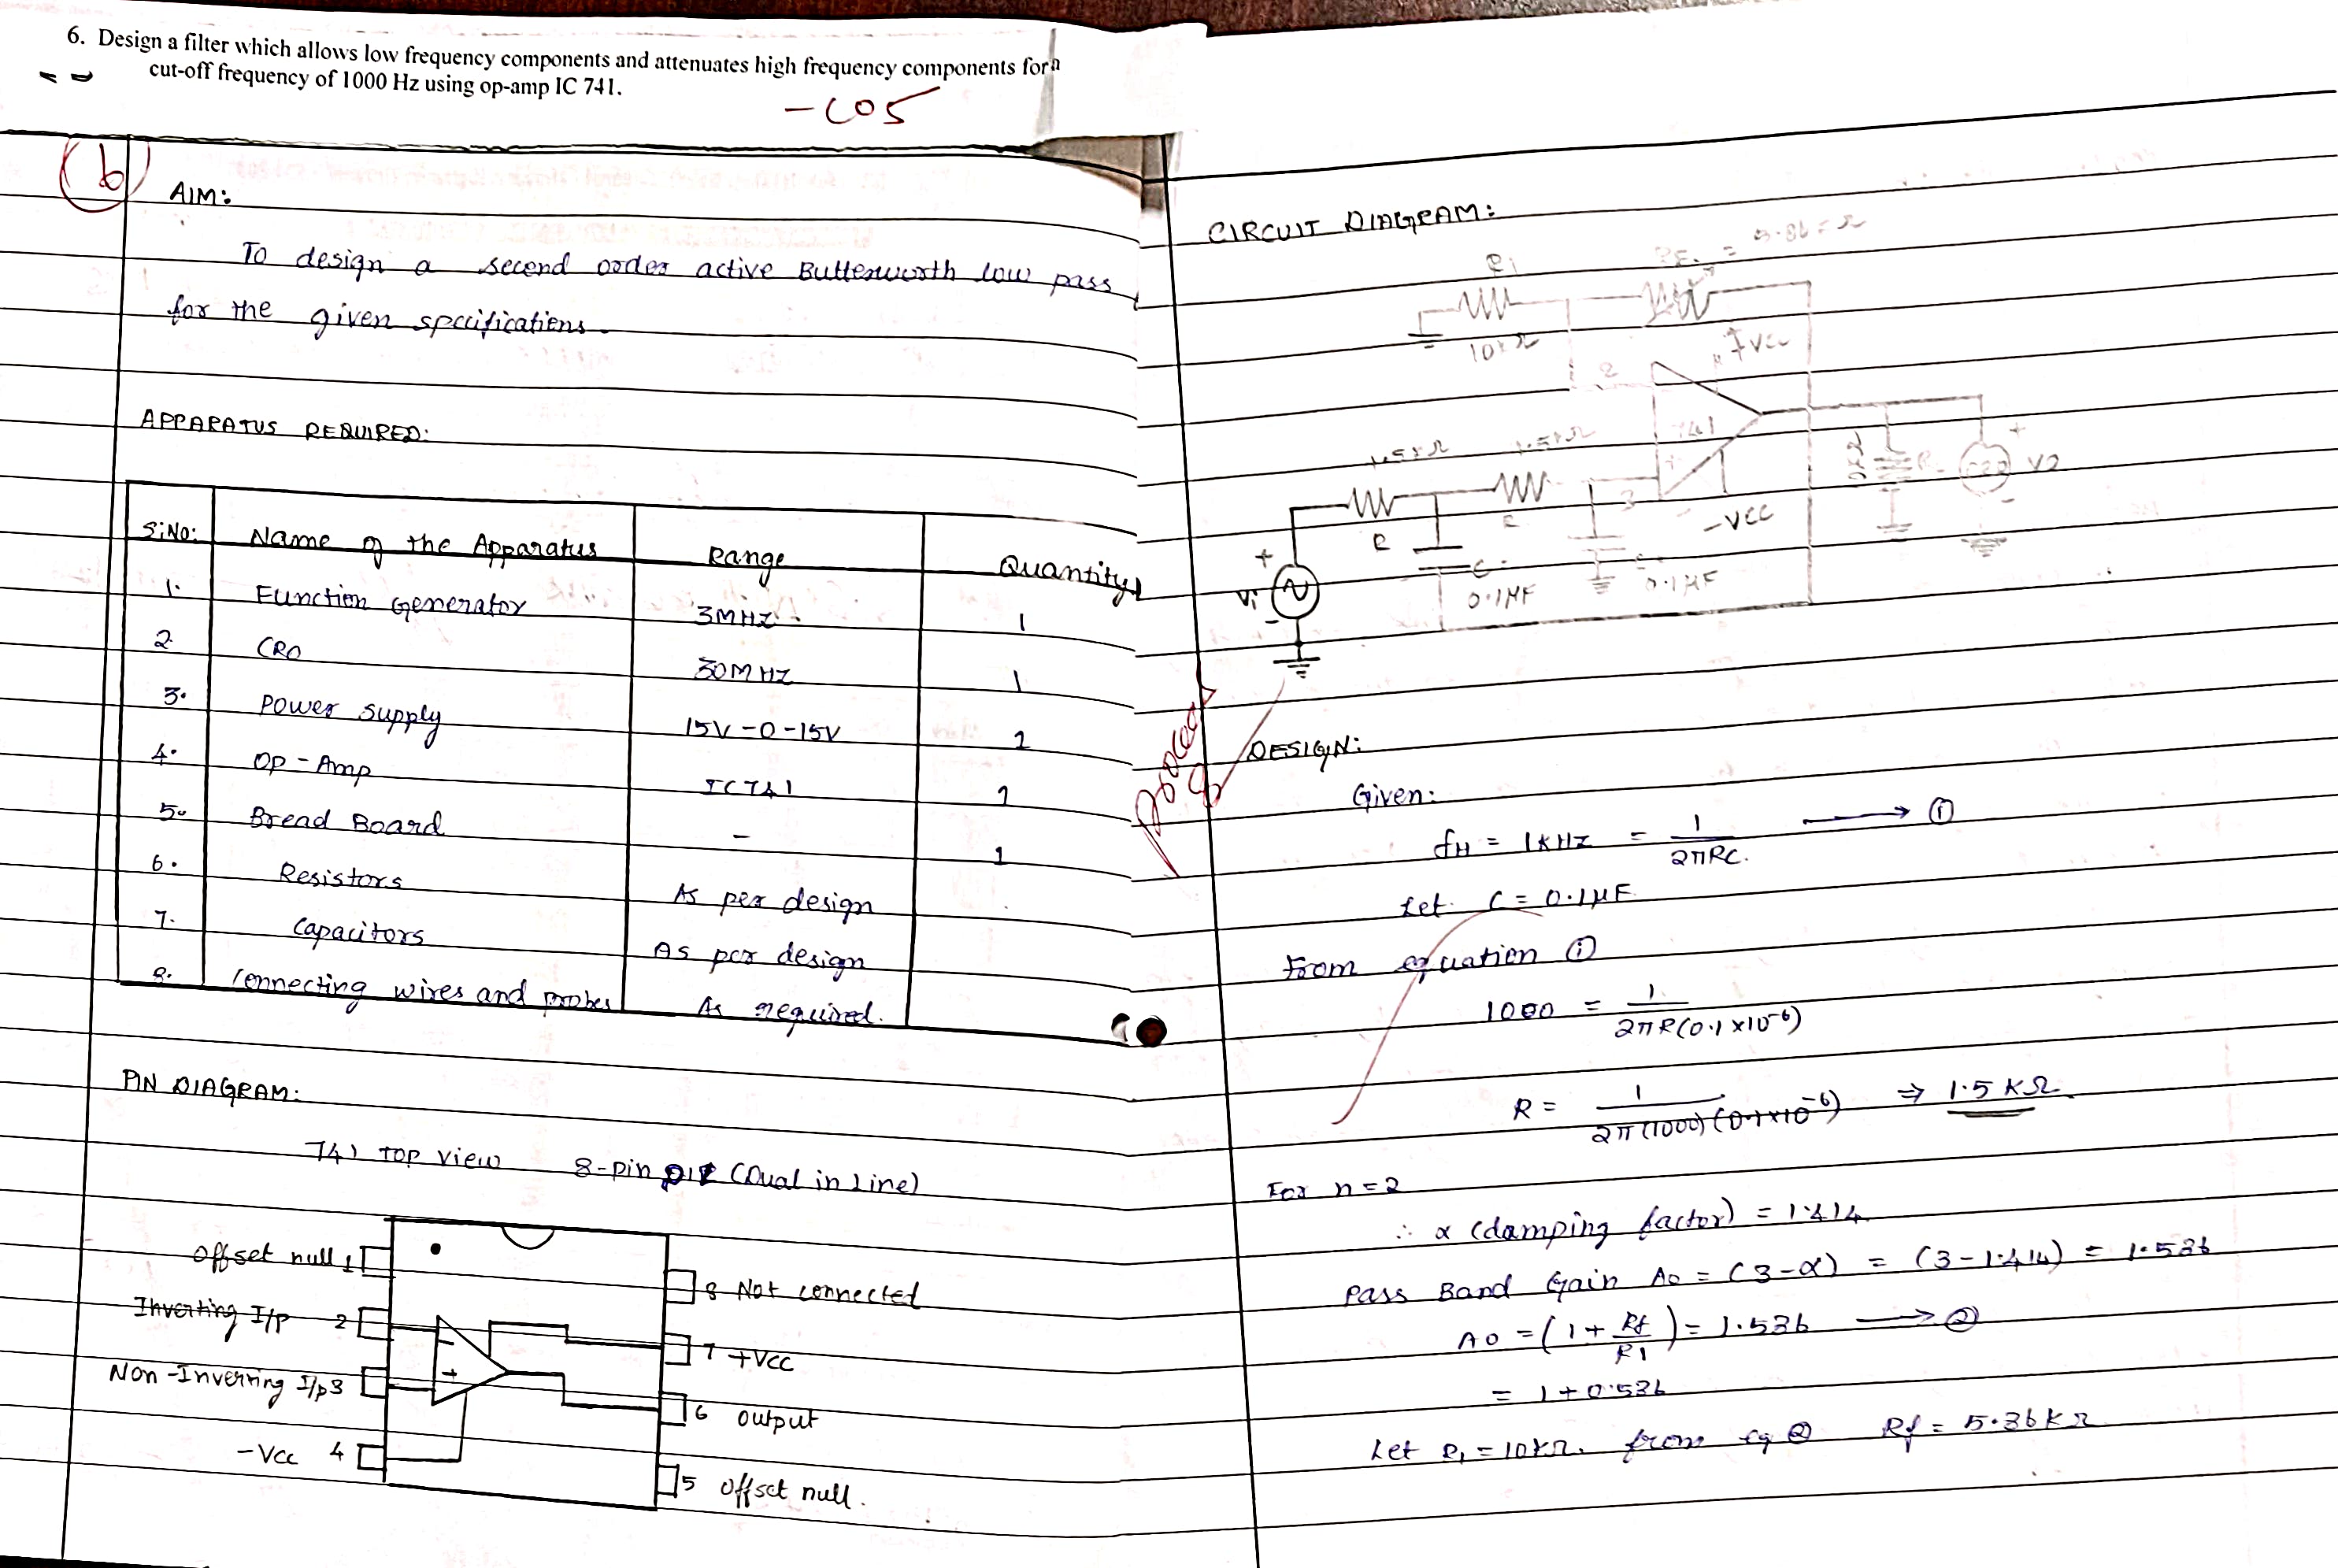 6. Design a filter which allows low frequency components and attenuates high frequency components for a
cut-off frequency of 1000 Hz using op-amp IC 741.
- CO5
6
AIM:
To design a second order active Butterworth low pass
for the given specifications.
APPARATUS REQUIRED:
S.No: Name of the Apparatus Range Quantity
1. Function Generator 3MHz 1
2. CRO 30MHz 1
3. Power supply 15V-0-15V 1
4. Op-Amp IC741 1
5. Bread Board - 1
6. Resistors As per design
7. Capacitors As per design
8. Connecting wires and probes As required.
PIN DIAGRAM:
741 TOP View 8-pin (Dual in Line)
Offset null 1
Inverting I/p 2
Non-Inverting I/p 3
-Vcc 4
8 Not connected
7 +Vcc
6 output
5 offset null.
CIRCUIT DIAGRAM:
R1
10kΩ
+Vcc
2
741
+
3
-VCC
1.5kΩ
1.5kΩ
R
R
C
0.1μF
C
0.1μF
+
Vi
-
+
V0
-
DESIGN:
Given:
fH = 1kHz = 1/2πRC. → ①
Let C = 0.1μF
From equation ①
1000 = 1/2πR(0.1×10⁻⁶)
R = 1/2π(1000)(0.1×10⁻⁶) ⇒ 1.5KΩ
For n=2
∴ α (damping factor) = 1.414
Pass Band Gain A0 = (3-α) = (3-1.414) = 1.536
A0 = (1 + Rf/R1) = 1.536 → ②
= 1 + 0.536
Let R1 = 10kΩ. from eq ② Rf = 5.36kΩ